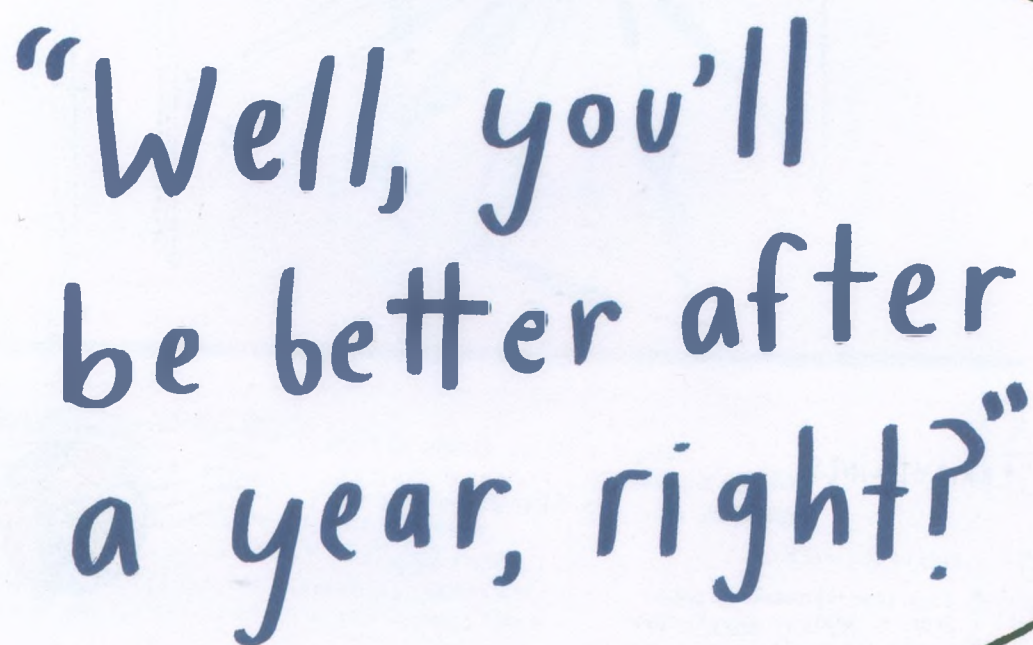 “Well, you’ll
be better after
a year, right?”